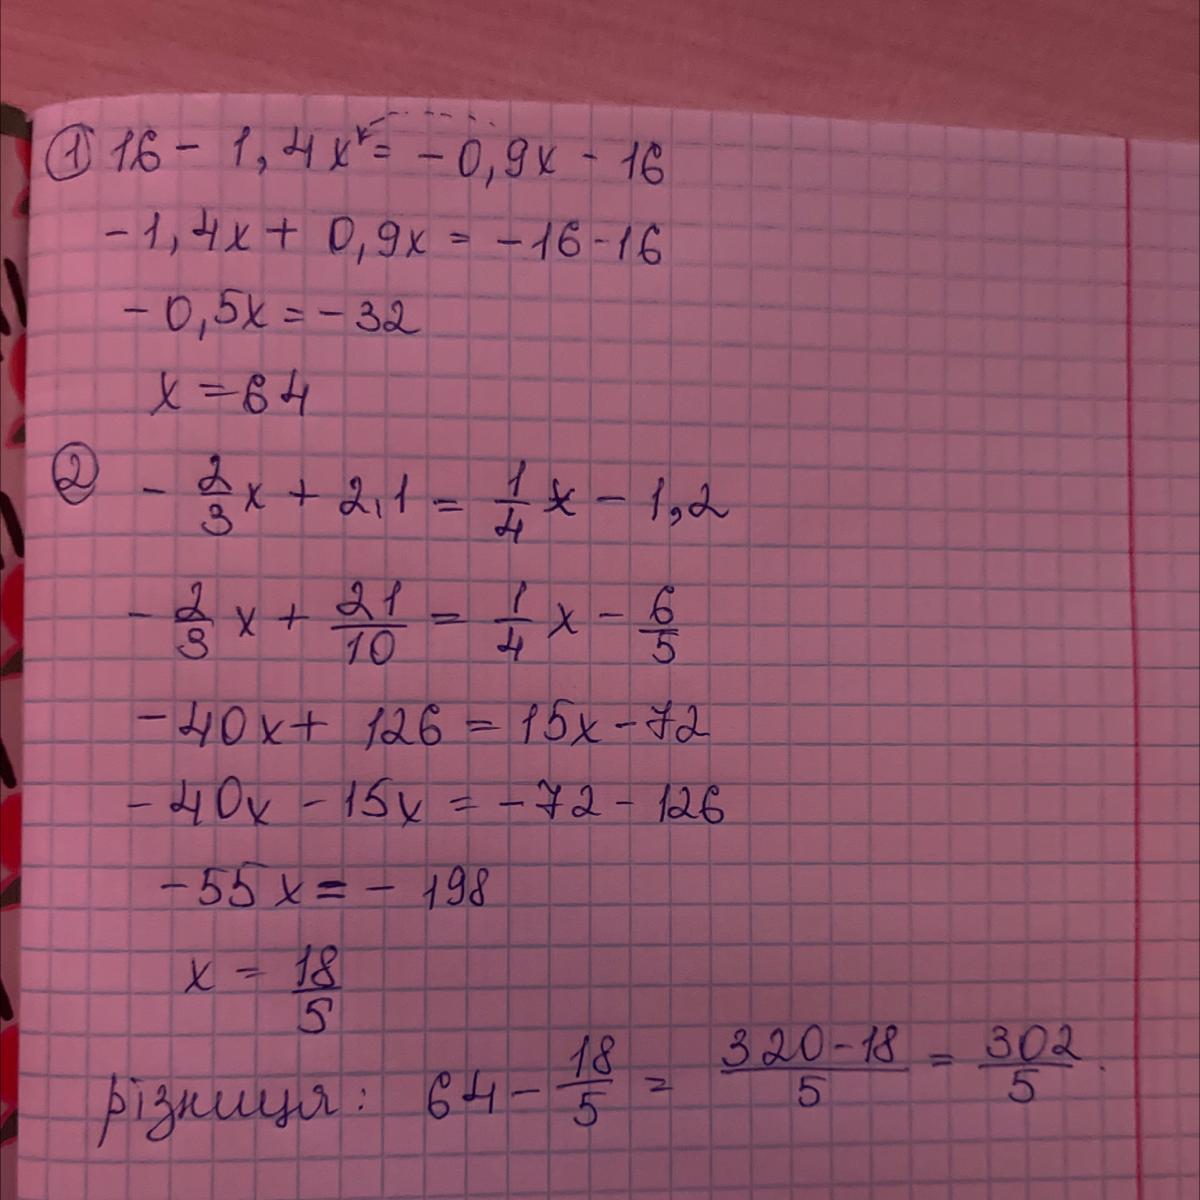 ① 16 - 1,4x = -0,9x - 16
-1,4x + 0,9x = -16-16
-0,5x = -32
x = 64
② - 2/3 x + 2,1 = 1/4 x - 1,2
- 2/3 x + 21/10 = 1/4 x - 6/5
-40x + 126 = 15x - 72
-40x - 15x = -72 - 126
-55x = - 198
x = 18/5
різниця: 64 - 18/5 = 320-18/5 = 302/5.